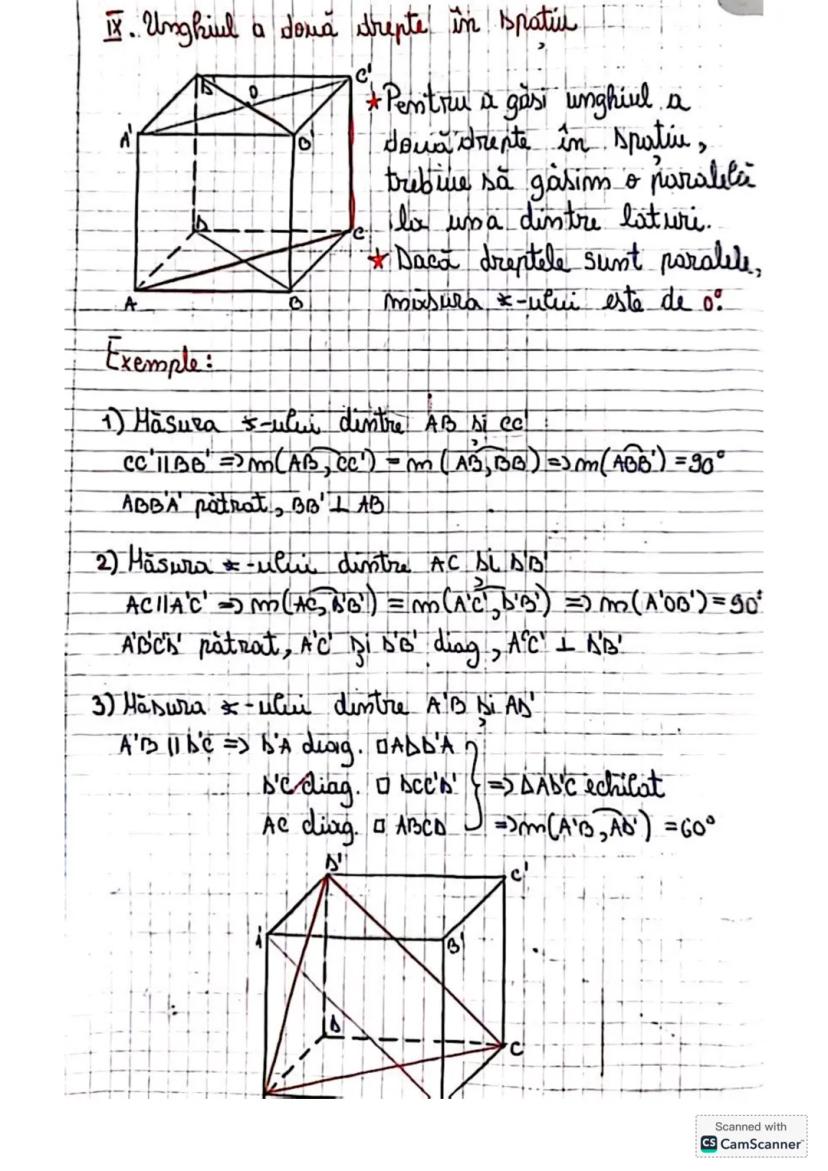 IX. Unghiul a două drepte în spațiu
D' O C'
A' B'
D C
A B
* Pentru a găsi unghiul a
două drepte în spațiu,
trebiue să găsim o paralelă
la una dintre laturi.
* Dacă dreptele sunt paralele,
măsura ∢-ului este de 0°.
Exemple:
1) Măsura ∢-ului dintre AB și CC'
CC' || BB' => m(AB, CC') = m(AB, BB') => m(ABB') = 90°
ABB'A' pătrat, BB' ⊥ AB
2) Măsura ∢-ului dintre AC și D'B'
AC || A'C' => m(AC, D'B') = m(A'C', D'B') => m(A'OB') = 90°
A'B'C'D' pătrat, A'C' și D'B' diag, A'C' ⊥ D'B'
3) Măsura ∢-ului dintre A'B și AD'
A'B || D'C => D'A diag. □ADD'A'
D'C diag. □ DCC'D' => ΔAD'C echilat
AC diag. □ ABCD => m(A'B, AD') = 60°
D' C'
A' B'
D C
Scanned with
CS CamScanner